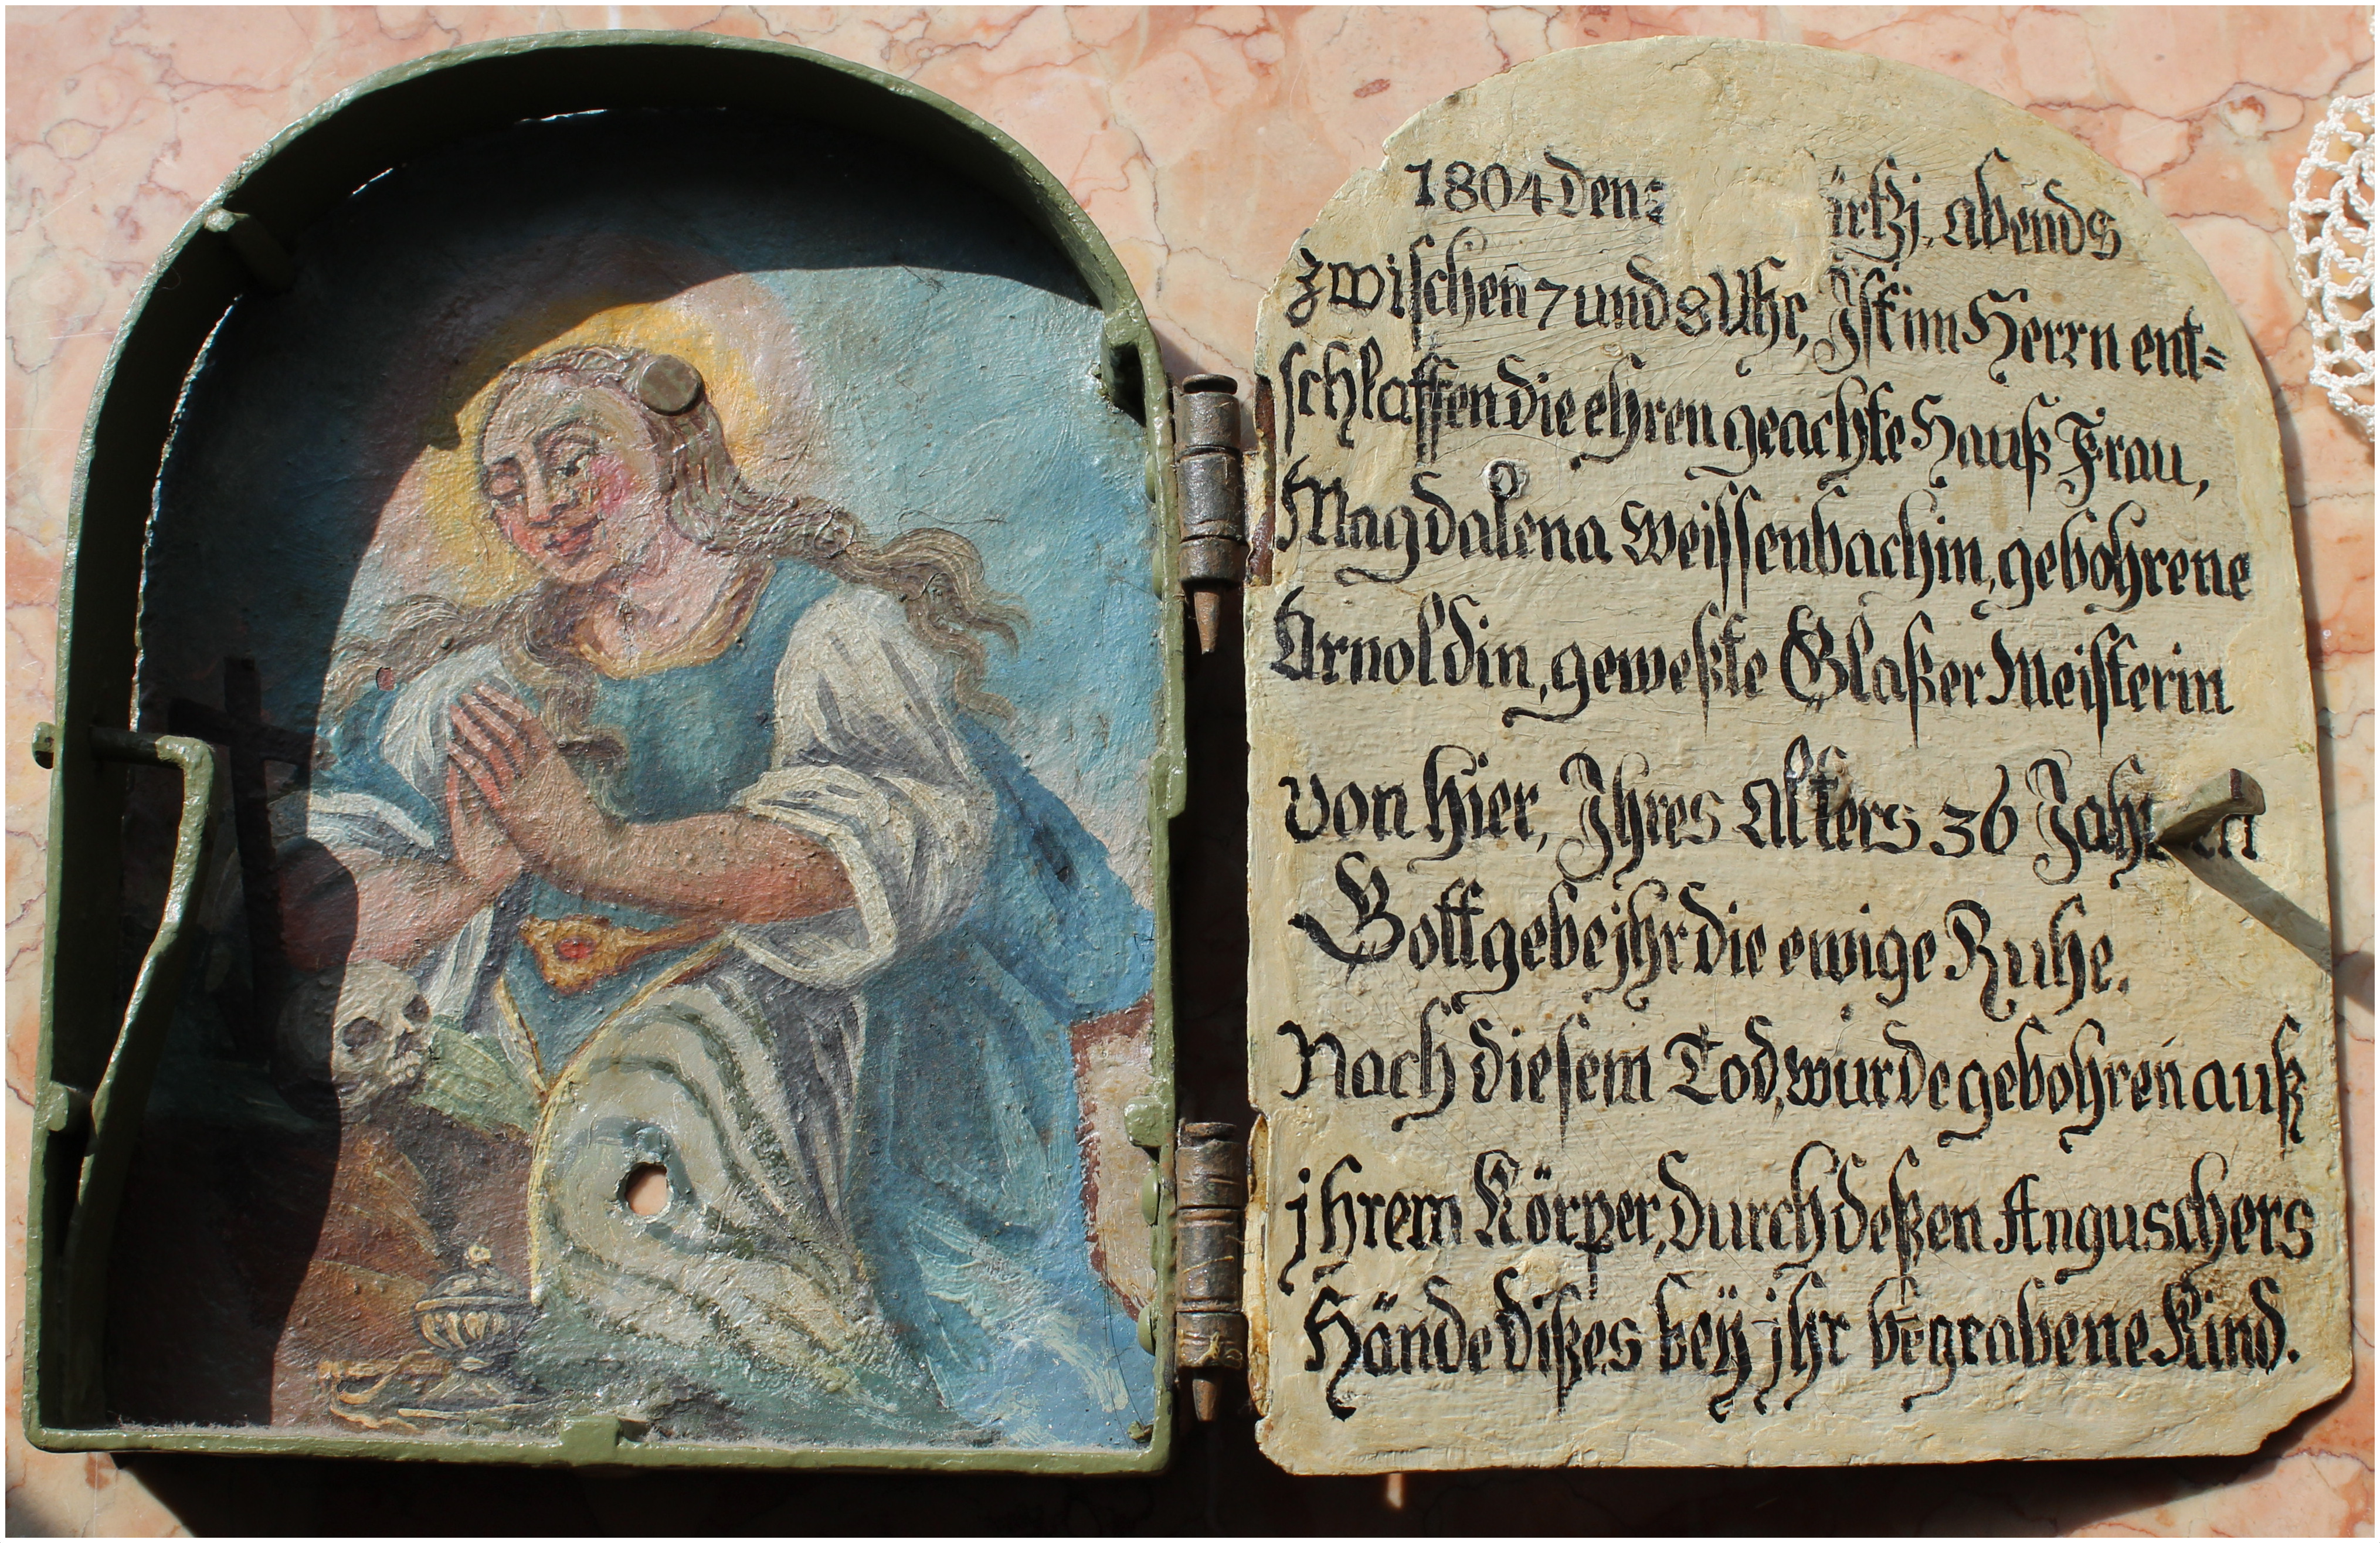 1804 den ärtzj, abends
zwischen 7 und 8 Uhr, Jst im Herrn ent=
schlaffen die ehren geachte Hauß Frau,
Magdalena Weissenbachin, gebohrene
Arnoldin, geweßte Glaßer Meisterin
von hier, Jhres Alters 36 Jahr
Gott gebe jhr die ewige Ruhe.
Nach diesem Tod, wurde gebohren auß
jhrem Körper, durch deßen Anguschers
Hände dißes beÿ jhr begrabene Kind.